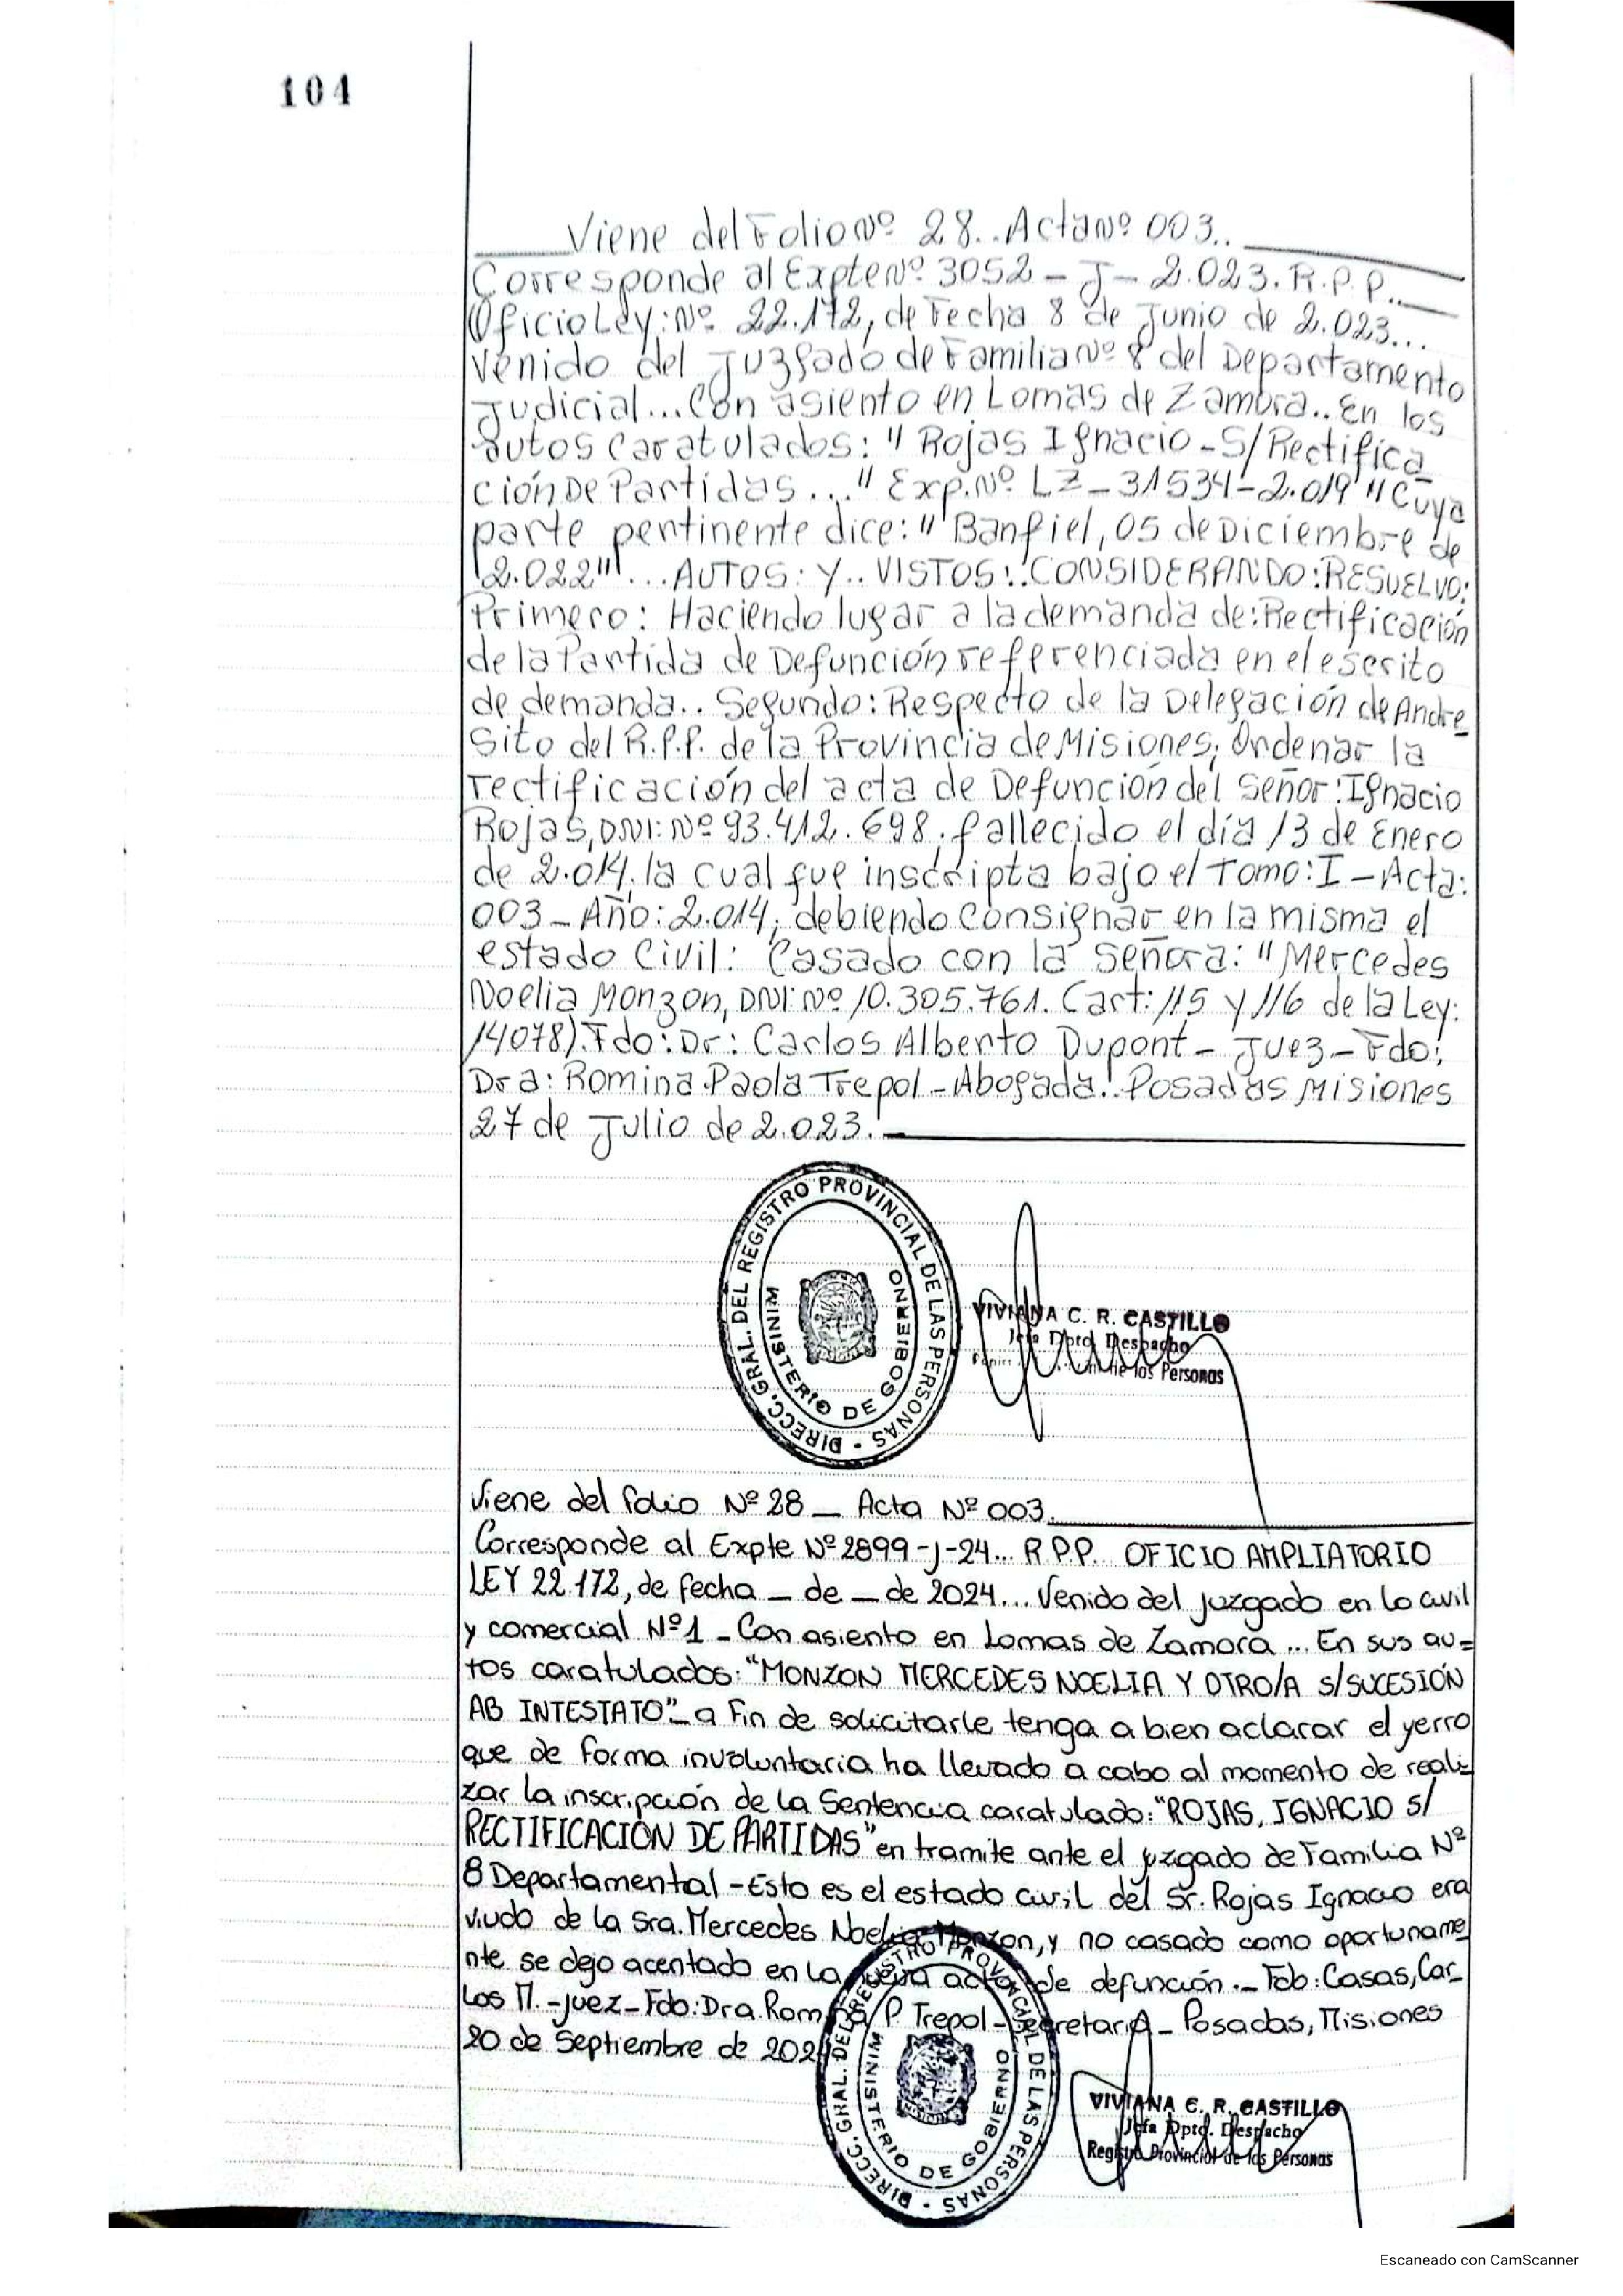 104
Viene del Folio Nº 28.. Acta Nº 003..
Corresponde al Expte Nº 3052 - J - 2.023. R.P.P..
Oficio Ley: Nº 22.172, de Fecha 8 de Junio de 2.023...
Venido del Juzgado de Familia Nº 8 del Departamento
Judicial... Con asiento en Lomas de Zamora.. En los
autos Caratulados: "Rojas Ignacio - S/Rectifica
ción De Partidas..." Exp. Nº LZ - 31534 - 2.019 "Cuya
parte pentinente dice: "Banfiel, 05 de Diciembre de
2.022"... AUTOS: Y.. VISTOS:. CONSIDERANDO: RESUELVO:
Primero: Haciendo lugar a la demanda de: Rectificación
de la Partida de Defunción referenciada en el escrito
de demanda.. Segundo: Respecto de la Delegación de Andre
sito del R.P.P. de la Provincia de Misiones; Ordenar la
rectificación del acta de Defunción del Señor: Ignacio
Rojas, DNI: Nº 93.412.698. fallecido el día 13 de Enero
de 2.014. la cual fue inscripta bajo el Tomo: I - Acta:
003 - Año: 2.014; debiendo Consignar en la misma el
estado Civil: Casado con la Señora: "Mercedes
Noelia Monzon, DNI: Nº 10.305.761. Cart: 115 y 116 de la Ley:
14078). Fdo: Dr: Carlos Alberto Dupont - Juez - Fdo:
Dra: Romina Paola Trepol - Abogada.. Posadas Misiones
27 de Julio de 2.023.
DIRECC. GRAL. DEL REGISTRO PROVINCIAL DE LAS PERSONAS -
MINISTERIO DE GOBIERNO
VIVIANA C. R. CASTILLO
Jefa Dptd. Despacho
de las Personas
Viene del folio Nº 28 - Acta Nº 003.
Corresponde al Expte Nº 2899-J-24... R.P.P. OFICIO AMPLIATORIO
LEY 22.172, de fecha _ de _ de 2024... Venido del juzgado en lo civil
y comercial Nº 1 - Con asiento en Lomas de Zamora... En sus au=
tos caratulados: "MONZON MERCEDES NOELIA Y OTRO/A S/SUCESIÓN
AB INTESTATO" - a fin de solicitarle tenga a bien aclarar el yerro
que de forma involuntaria ha llevado a cabo al momento de reali=
zar la inscripción de la Sentencia caratulado: "ROJAS, IGNACIO S/
RECTIFICACIÓN DE PARTIDAS" en tramite ante el juzgado de Familia Nº
8 Departamental - Esto es el estado civil del Sr. Rojas Ignacio era
viudo de la Sra. Mercedes Noelia Monzon, y no casado como oportuname
nte se dejo acentado en la acta de defunción. - Fdo: Casas, Car_
los M. - Juez - Fdo: Dra. Romina P. Trepol - Secretaria - Posadas, Misiones
20 de Septiembre de 2024
DIRECC. GRAL. DEL REGISTRO PROVINCIAL DE LAS PERSONAS -
MINISTERIO DE GOBIERNO
VIVIANA C. R. CASTILLO
Jefa Dptd. Despacho
Registro Provincial de las Personas
Escaneado con CamScanner